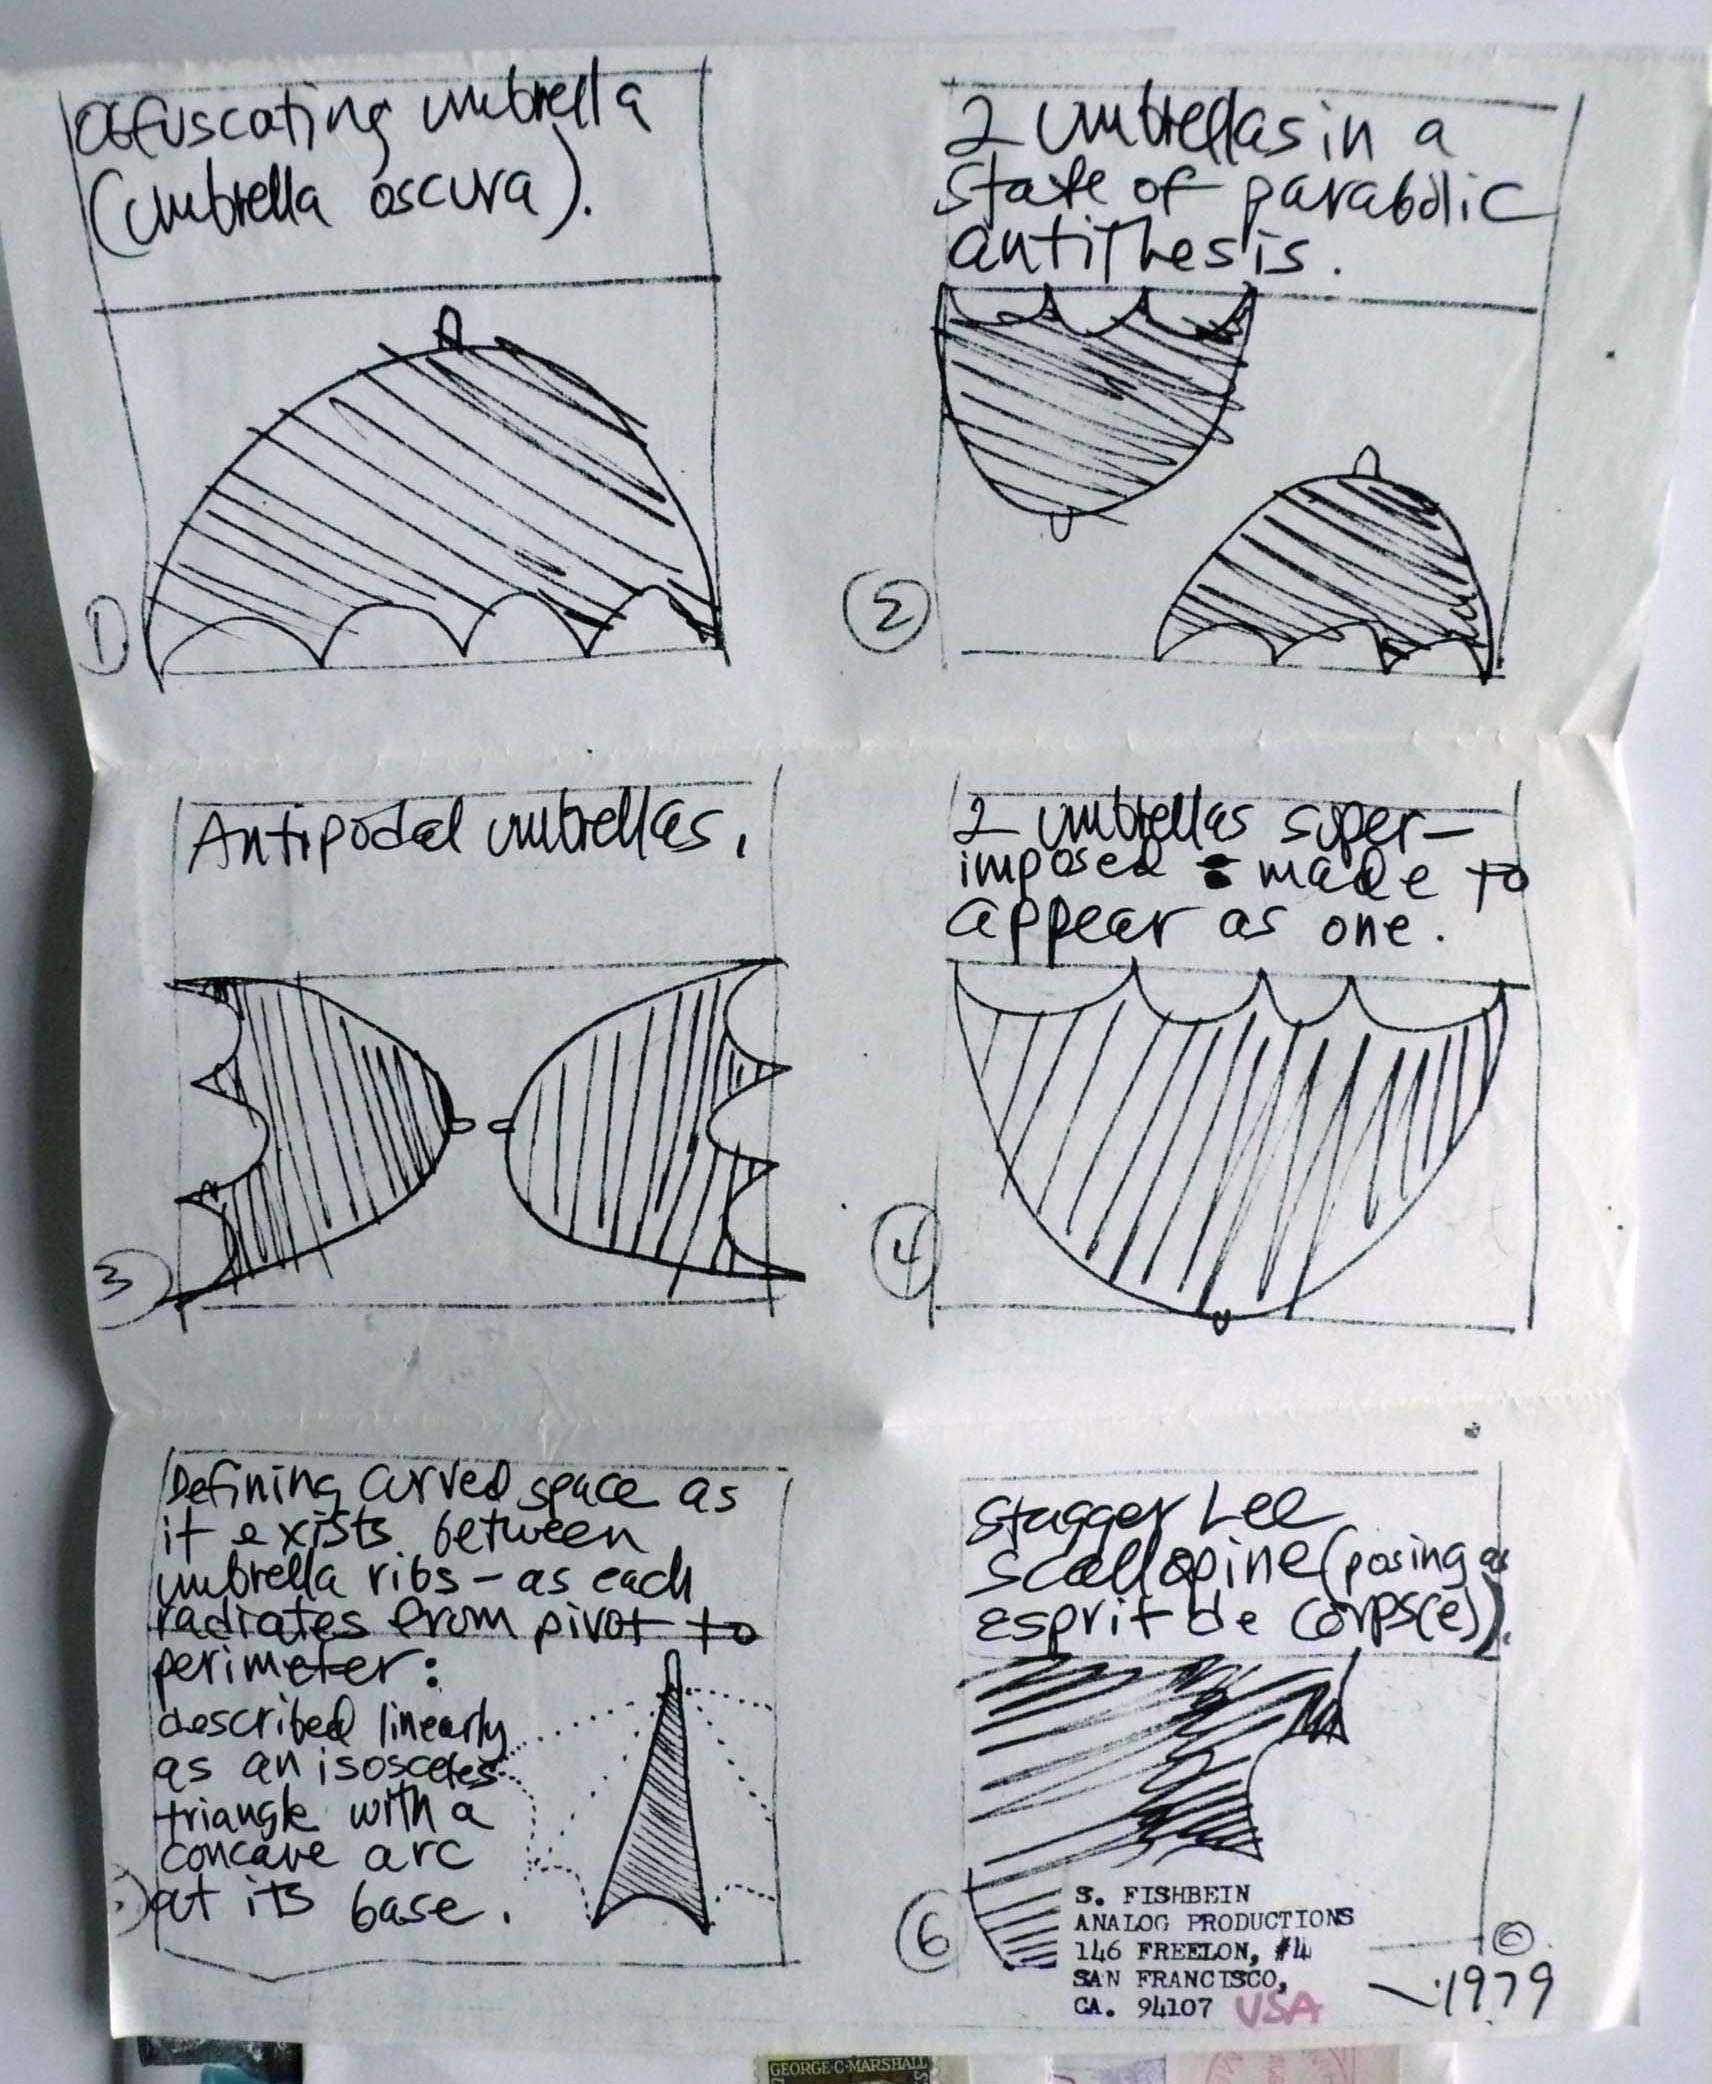 Obfuscating umbrella
(umbrella oscura).
1
2 umbrellas in a
state of parabolic
antithesis.
2
Antipodal umbrellas.
3
2 umbrellas super-
imposed : made to
appear as one.
4
Defining curved space as
it exists between
umbrella ribs - as each
radiates from pivot to
perimeter:
described linearly
as an isosceles
triangle with a
concave arc
at its base.
Stagger Lee
Scallopine (posing as
esprit de corps(e)).
6
S. FISHBEIN
ANALOG PRODUCTIONS
146 FREELON, #4
SAN FRANCISCO,
CA. 94107 USA
©
1979
GEORGE·C·MARSHALL